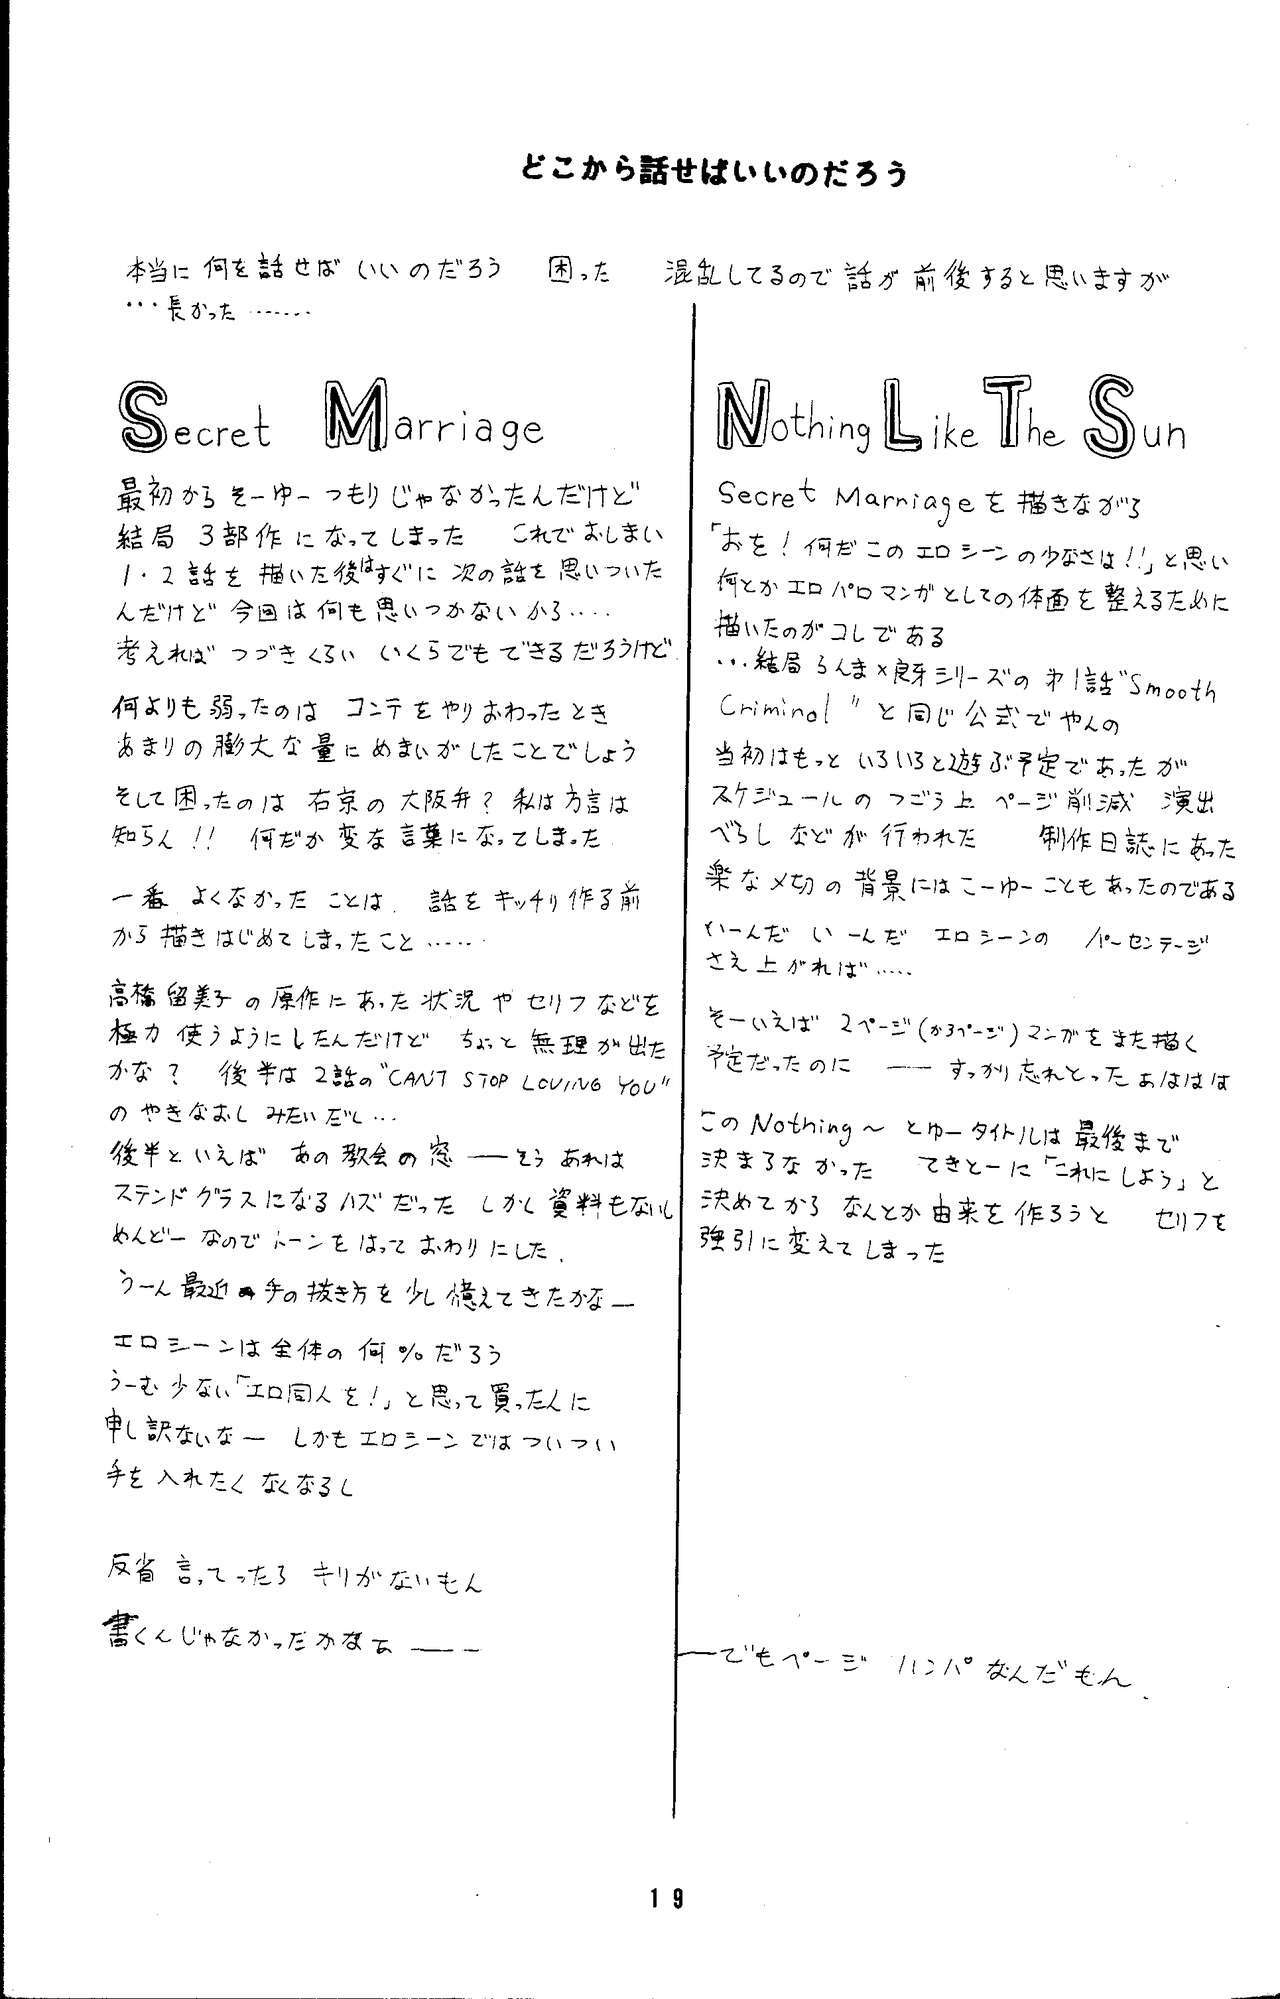 どこから話せばいいのだろう
本当に何を話せばいいのだろう 困った 混乱してるので話が前後すると思いますが
…長かった……
Secret Marriage
最初からそーゆーつもりじゃなかったんだけど
結局 3部作になってしまった これでおしまい
1・2話を描いた後はすぐに次の話を思いついた
んだけど今回は何も思いつかないから‥‥
考えればつづきくらい いくらでもできるだろうけど
何よりも弱ったのは コンテをやりおわったとき
あまりの膨大な量にめまいがしたことでしょう
そして困ったのは 右京の大阪弁? 私は方言は
知らん!! 何だか変な言葉になってしまった
一番よくなかったことは、話をキッチリ作る前
から描きはじめてしまったこと……
高橋留美子の原作にあった状況やセリフなどを
極力使うようにしたんだけど ちょっと無理が出た
かな? 後半は2話の"CANT STOP LOVING YOU"
のやきなおしみたいだし…
後半といえば あの教会の窓 ── そう あれは
ステンドグラスになるハズだった しかし資料もないし
めんどーなのでトーンをはっておわりにした.
うーん最近手の抜き方を少し憶えてきたかなー
エロシーンは全体の何%だろう
うーむ少ない「エロ同人を!」と思って買った人に
申し訳ないなー しかもエロシーンではついつい
手を入れたくなくなるし
反省言ってったらキリがないもん
書くんじゃなかったかなぁ ── ─
Nothing Like The Sun
Secret Marriageを描きながら
「おを!何だこのエロシーンの少なさは!!」と思い
何とかエロパロマンガとしての体面を整えるために
描いたのがコレである
…結局らんま×良牙シリーズの才1話"Smooth
Criminal"と同じ公式でやんの
当初はもっといろいろと遊ぶ予定であったが
スケジュールのつごう上 ページ削減 演出
べらしなどが行われた 制作日誌にあった
楽な〆切の背景にはこーゆーこともあったのである
いーんだ いーんだ エロシーンの パーセンテージ
さえ上がれば……
そーいえば 2ページ(から3ページ)マンガをまた描く
予定だったのに ── すっかり忘れとった あははは
このNothing〜 とゆータイトルは最後まで
決まらなかった てきとーに「これにしよう」と
決めてからなんとか由来を作ろうと セリフを
強引に変えてしまった
──でもページ ハンパなんだもん
19